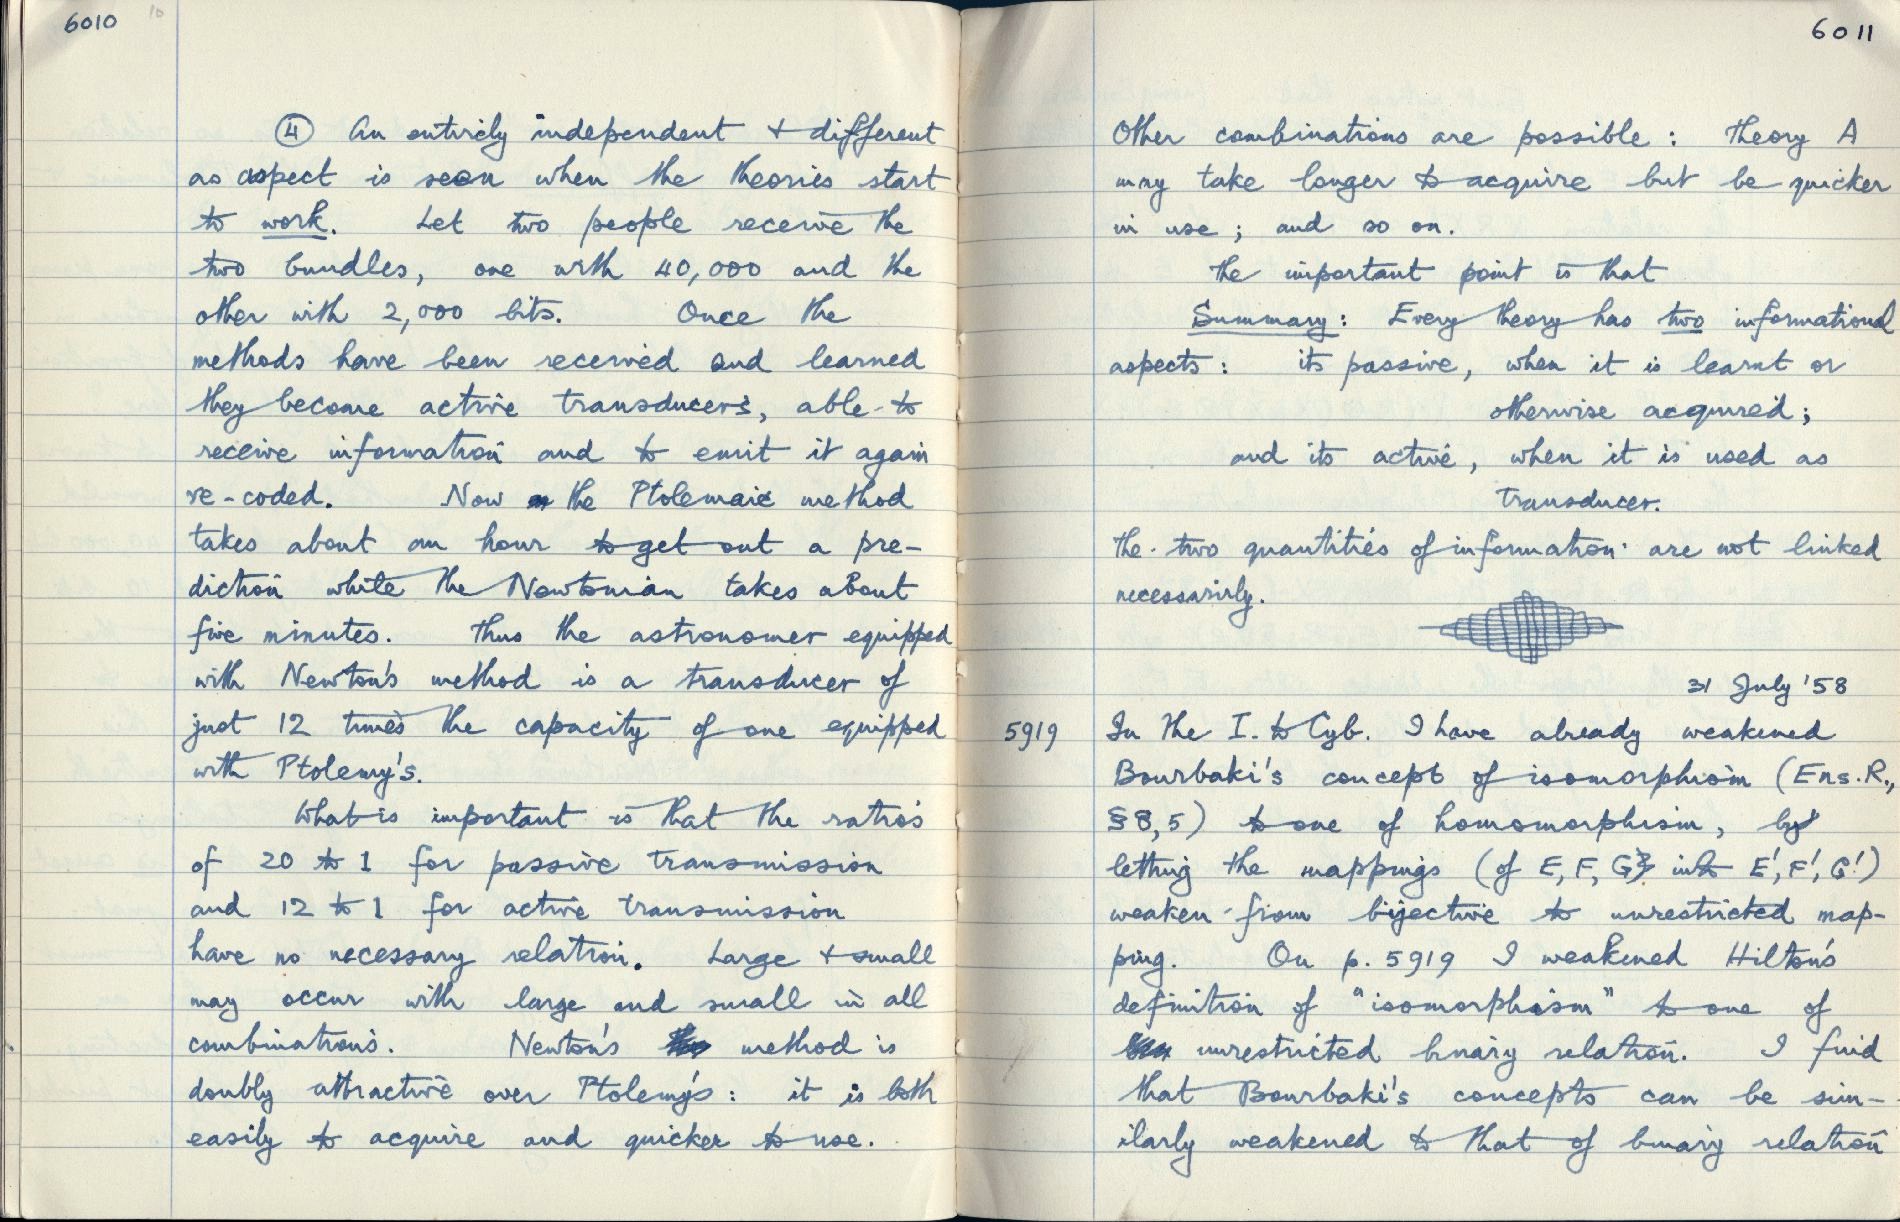 6010
④ An entirely independent + different
as aspect is seen when the theories start
to work. Let two people receive the
two bundles, one with 40,000 and the
other with 2,000 bits. Once the
methods have been received and learned
they become active transducers, able to
receive information and to emit it again
re-coded. Now the Ptolemaic method
takes about an hour to get out a pre-
diction while the Newtonian takes about
five minutes. Thus the astronomer equipped
with Newton's method is a transducer of
just 12 times the capacity of one equipped
with Ptolemy's.
What is important is that the ratios
of 20 to 1 for passive transmission
and 12 to 1 for active transmission
have no necessary relation. Large + small
may occur with large and small in all
combinations. Newton's method is
doubly attractive over Ptolemy's: it is both
easily to acquire and quicker to use.
6011
Other combinations are possible: Theory A
may take longer to acquire but be quicker
in use; and so on.
The important point is that
Summary: Every theory has two informational
aspects: its passive, when it is learnt or
otherwise acquired;
and its active, when it is used as
transducer.
The two quantities of information are not linked
necessarily.
31 July '58
5919 In the I. to Cyb. I have already weakened
Bourbaki's concept of isomorphism (Ens. R.,
§8,5) to one of homomorphism, by
letting the mappings (of E, F, G into E', F', G')
weaken from bijective to unrestricted map-
ping. On p. 5919 I weakened Hilton's
definition of "isomorphism" to one of
unrestricted binary relation. I find
that Bourbaki's concepts can be sim-
ilarly weakened to that of binary relation